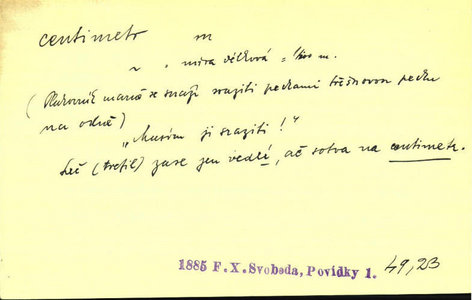 centimetr m
~ „ míra délková „ 1/100 m.
( marně se snaží sraziti peckami třešňovou pecku
na odně)
„Musím ji sraziti!"
Leč (trefil) zase jen vedlí, ač sotva na centimetr.
1885 F.X.Svoboda, Povídky 1. 49,23